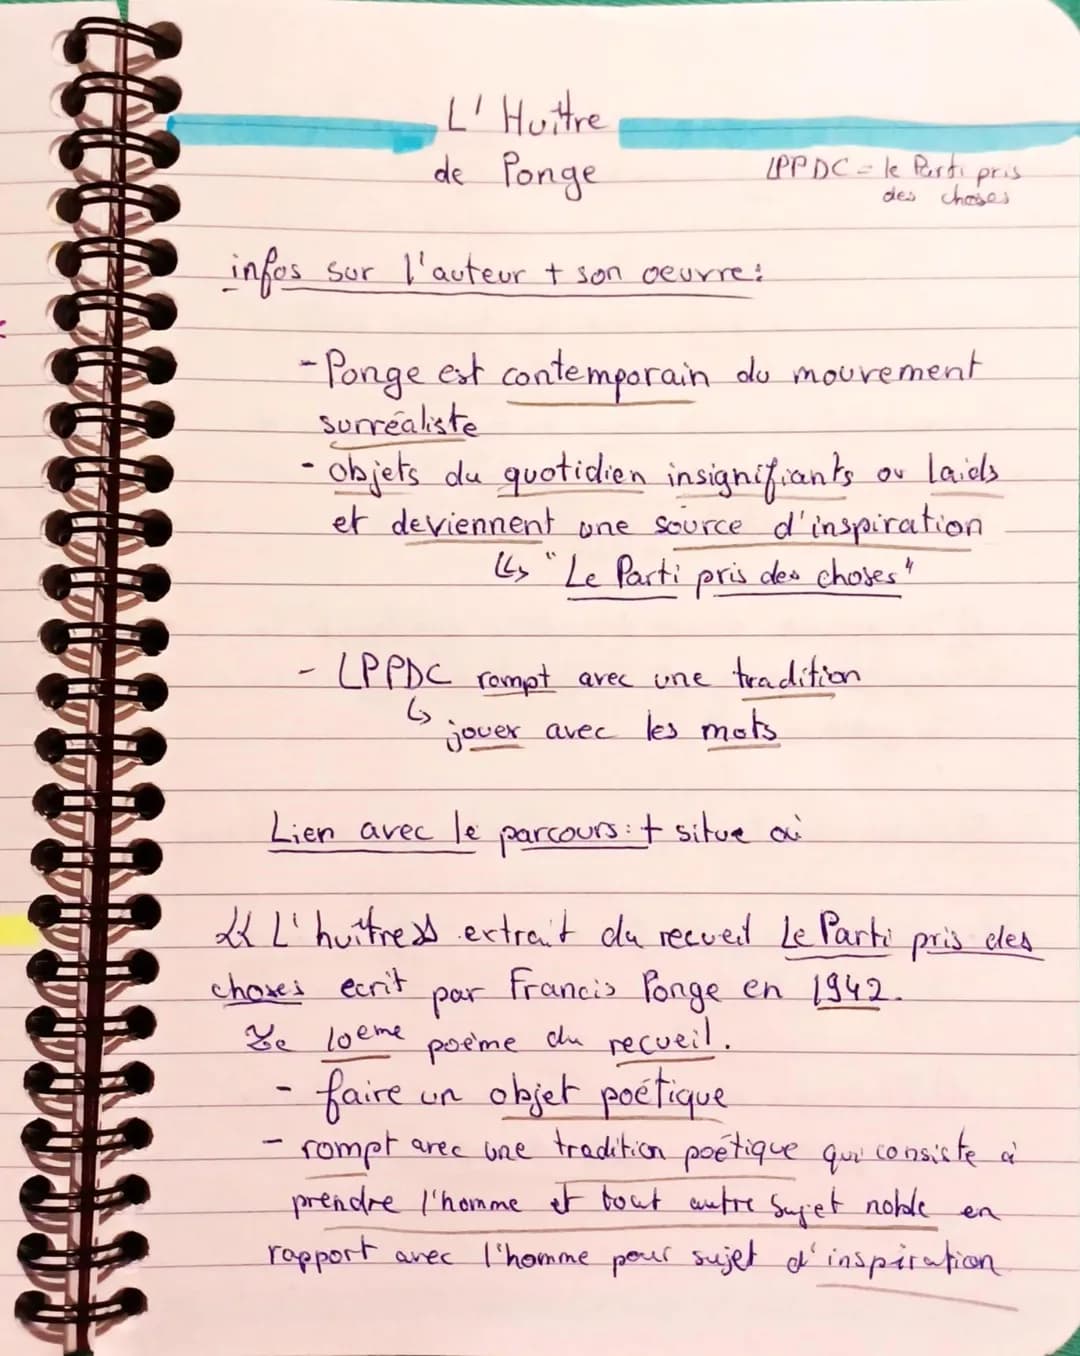 L'Huître
de Ponge
LPPDC = le Parti pris
des choses
infos sur l'auteur + son oeuvre:
- Ponge est contemporain du mouvement
surréaliste
- objets du quotidien insignifiants ou laids
et deviennent une source d'inspiration
↳ "Le Parti pris des choses"
- LPPDC rompt avec une tradition
↳ jouer avec les mots
Lien avec le parcours: + situe où
« L'huître » extrait du recueil Le Parti pris des
choses ecrit par Francis Ponge en 1942.
Le 10eme poème du recueil.
- faire un objet poétique
- rompt avec une tradition poétique qui consiste à
prendre l'homme et tout autre sujet noble en
rapport avec l'homme pour sujet d'inspiration